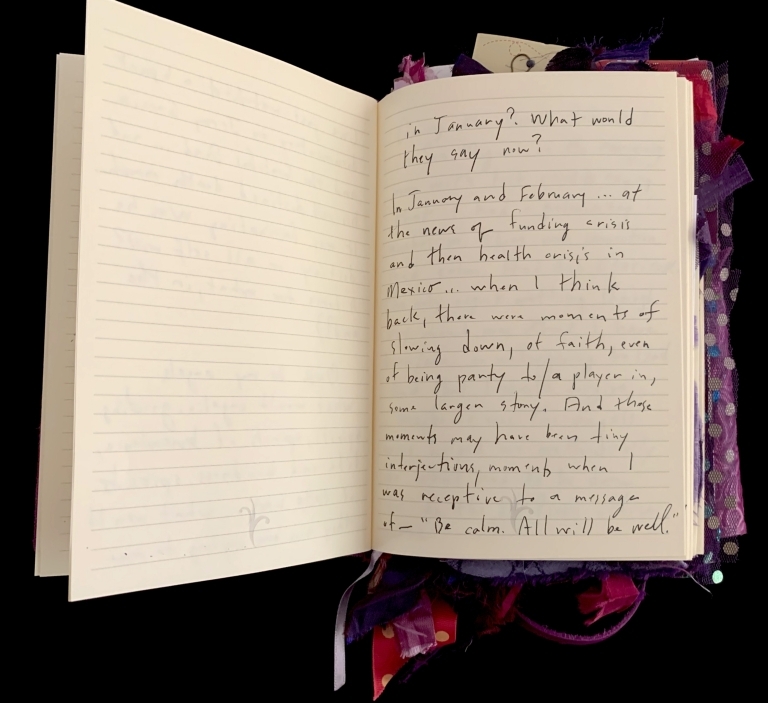 in January?. What would
they say now?
In January and February ... at
the news of funding crisis
and then health crisis in
Mexico ... when I think
back, there were moments of
slowing down, of faith, even
of being party to/a player in,
some larger story. And those
moments may have been tiny
interjections, moments when I
was receptive to a message
of - "Be calm. All will be well."